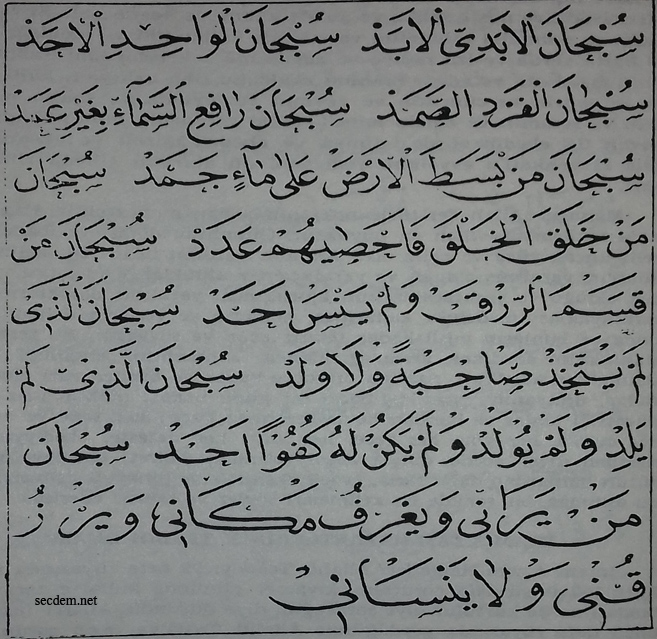 سُبْحَانَ الْاَبَدِيِّ الْاَبَدْ سُبْحَانَ الْوَاحِدِ الْاَحَدْ
سُبْحَانَ الْفَرْدِ الصَّمَدْ سُبْحَانَ رَافِعِ السَّمَٓاءِ بِغَيْرِ عَمَدْ
سُبْحَانَ مَنْ بَسَطَ الْاَرْضَ عَلٰى مَٓاءٍ جَمَدْ سُبْحَانَ
مَنْ خَلَقَ الْخَلْقَ فَاَحْصٰيهُمْ عَدَدْ سُبْحَانَ مَنْ
قَسَمَ الرِّزْقَ وَلَمْ يَنْسَ اَحَدْ سُبْحَانَ الَّذٖى
لَمْ يَتَّخِذْ صَاحِبَةً وَلَا وَلَدْ سُبْحَانَ الَّذٖى لَمْ
يَلِدْ وَلَمْ يُولَدْ وَلَمْ يَكُنْ لَهُ كُفُوًا اَحَدْ سُبْحَانَ
مَنْ يَرَانٖى وَيَعْرِفُ مَكَانٖى وَيَرْزُ
قُنٖى وَلَا يَنْسَانٖى
secdem.net